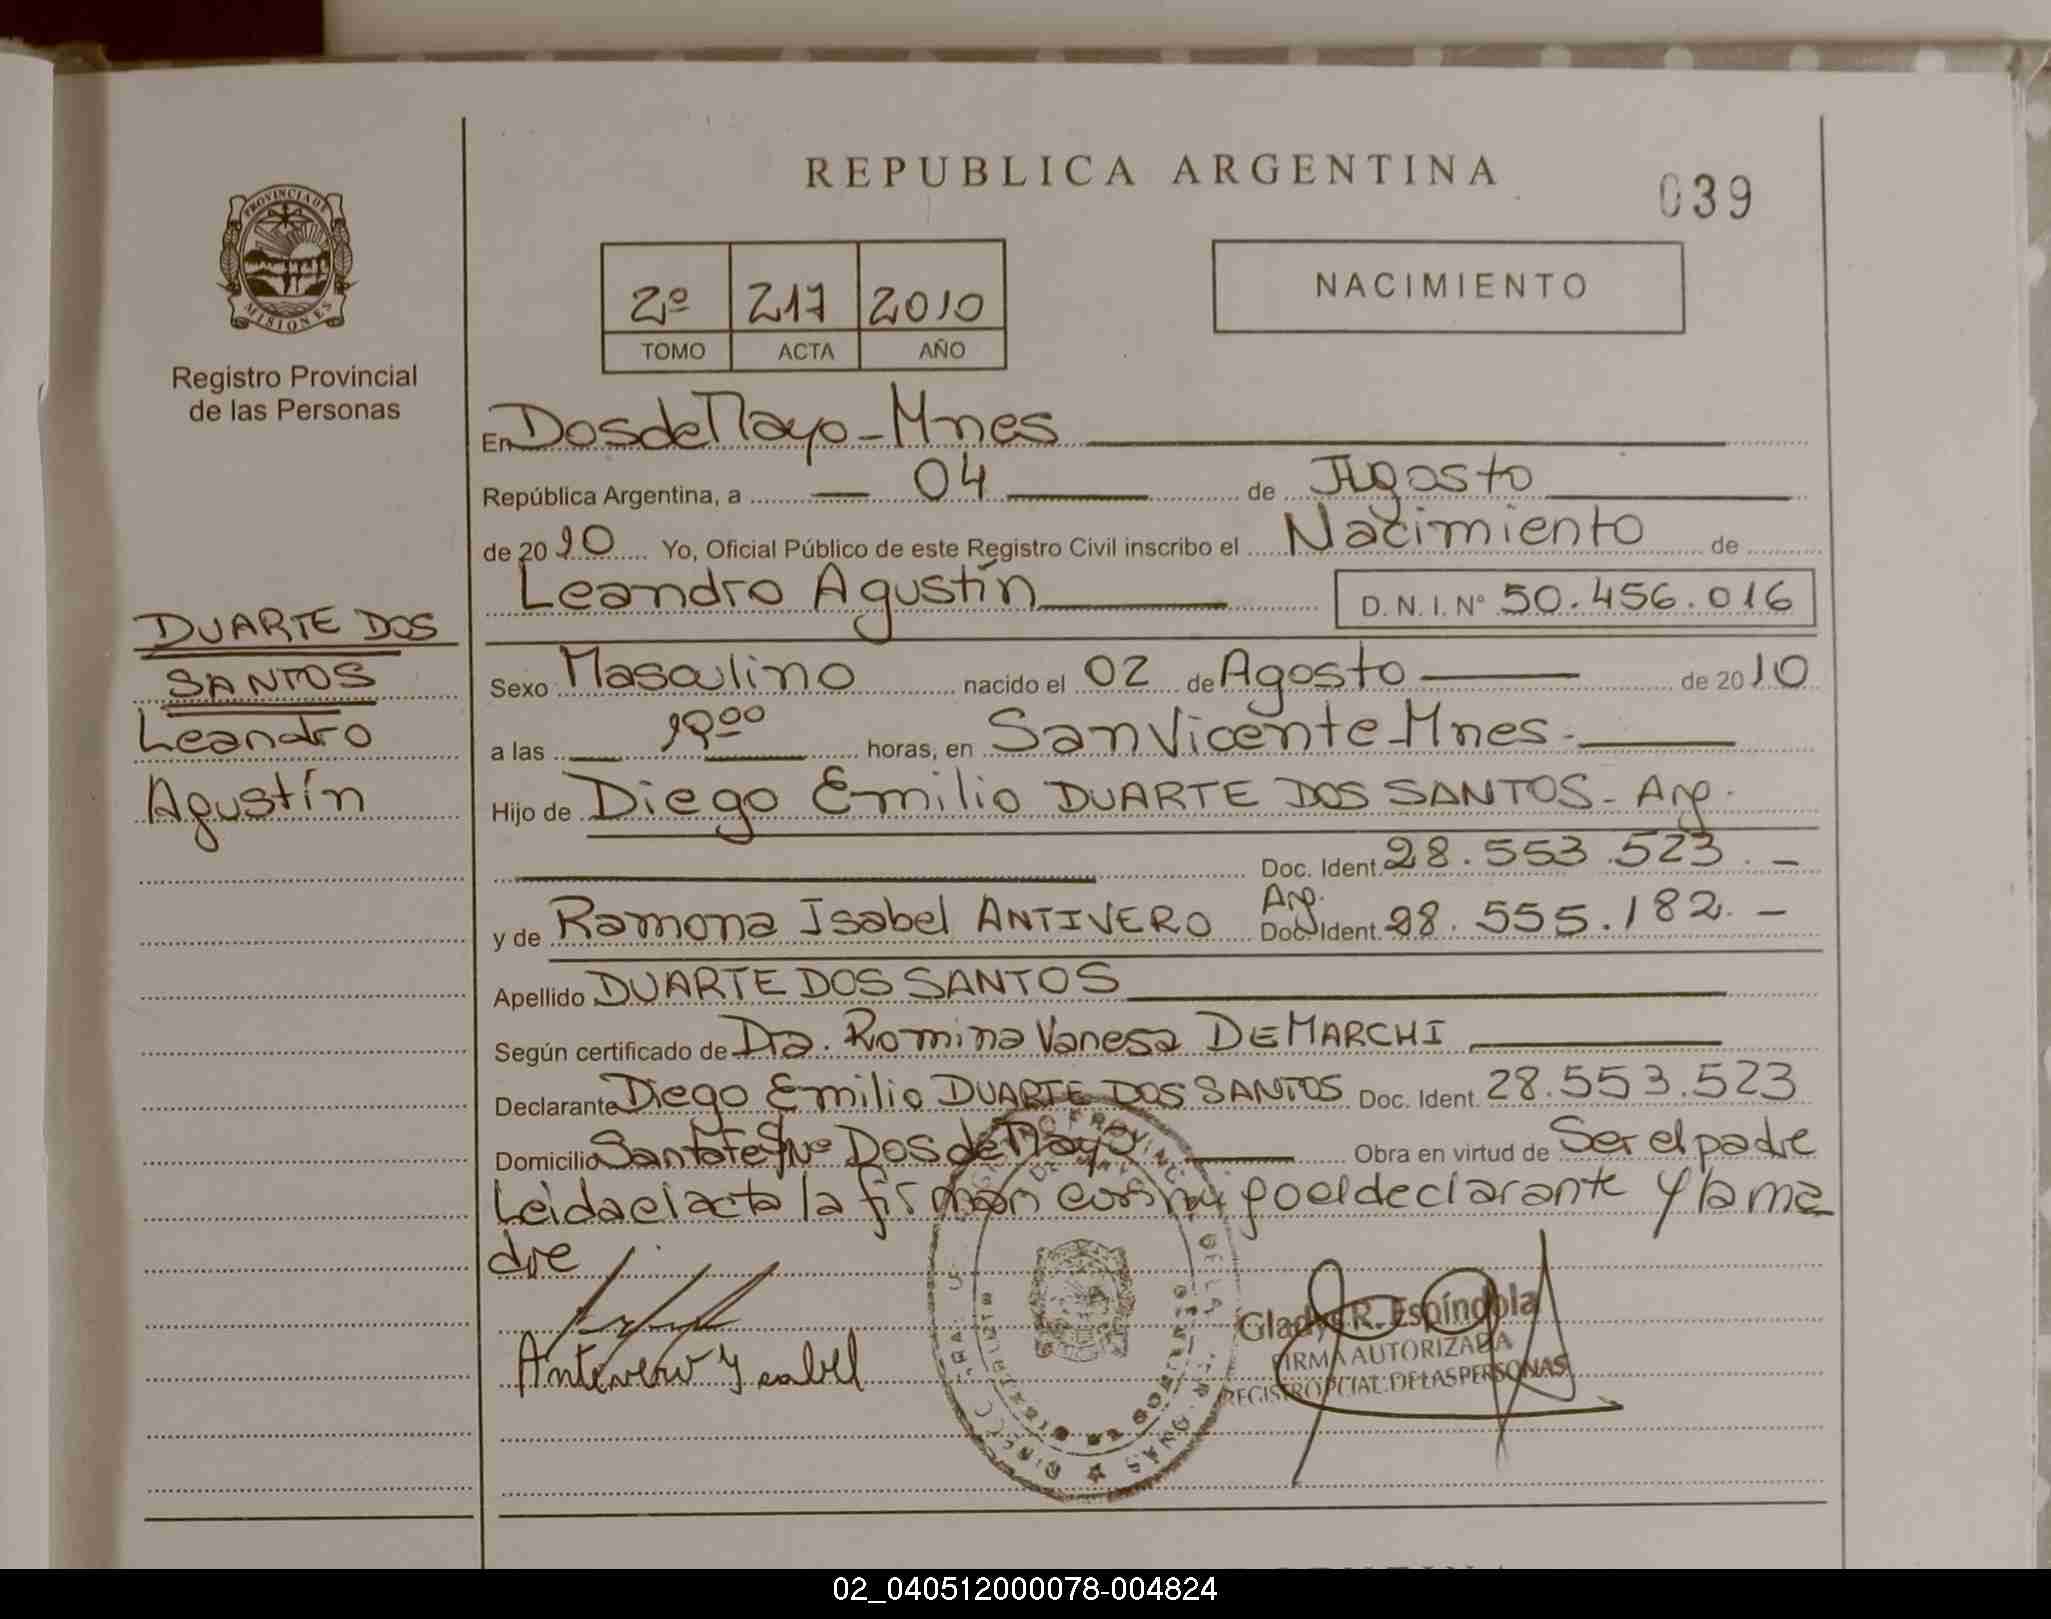 REPUBLICA ARGENTINA
039
PROVINCIA DE
MISIONES
Registro Provincial
de las Personas
2º 217 2010
TOMO ACTA AÑO
NACIMIENTO
En Dos de Mayo - Mnes
República Argentina, a 04 de Agosto
de 2010 Yo, Oficial Público de este Registro Civil inscribo el Nacimiento de
Leandro Agustín D.N.I. Nº 50.456.016
DUARTE DOS
SANTOS
Leandro
Agustín
Sexo Masculino nacido el 02 de Agosto de 2010
a las horas, en San Vicente - Mnes.
Hijo de Diego Emilio DUARTE DOS SANTOS - Arg.
Doc. Ident. 28.553.523. -
y de Ramona Isabel ANTIVERO Arg. Doc. Ident. 28.555.182. -
Apellido DUARTE DOS SANTOS
Según certificado de Dra. Romina Vanesa DEMARCHI
Declarante Diego Emilio DUARTE DOS SANTOS Doc. Ident. 28.553.523
Domicilio Santa Fe Dos de Mayo Obra en virtud de Ser el padre
Leida el acta la firman conmigo el declarante y la ma
dre
Antivero Isabel
Gladys R. Espíndola
FIRMA AUTORIZADA
REGISTRO PCIAL. DE LAS PERSONAS
02_040512000078-004824